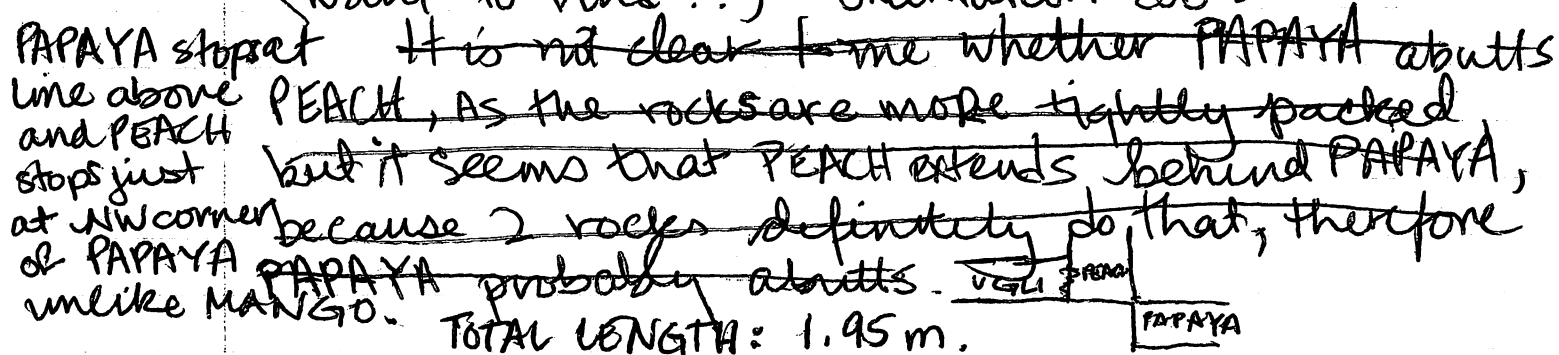 PAPAYA stops at
line above
and PEACH
stops just
at NW corner
of PAPAYA
unlike MANGO.
It is not clear to me whether PAPAYA abutts
PEACH, As the rocks are more tightly packed
but it seems that PEACH extends behind PAPAYA,
because 2 rocks definitely do that, therefore
PAPAYA probably abutts.
UGLI
PEACH
PAPAYA
TOTAL LENGTH: 1.95 m.